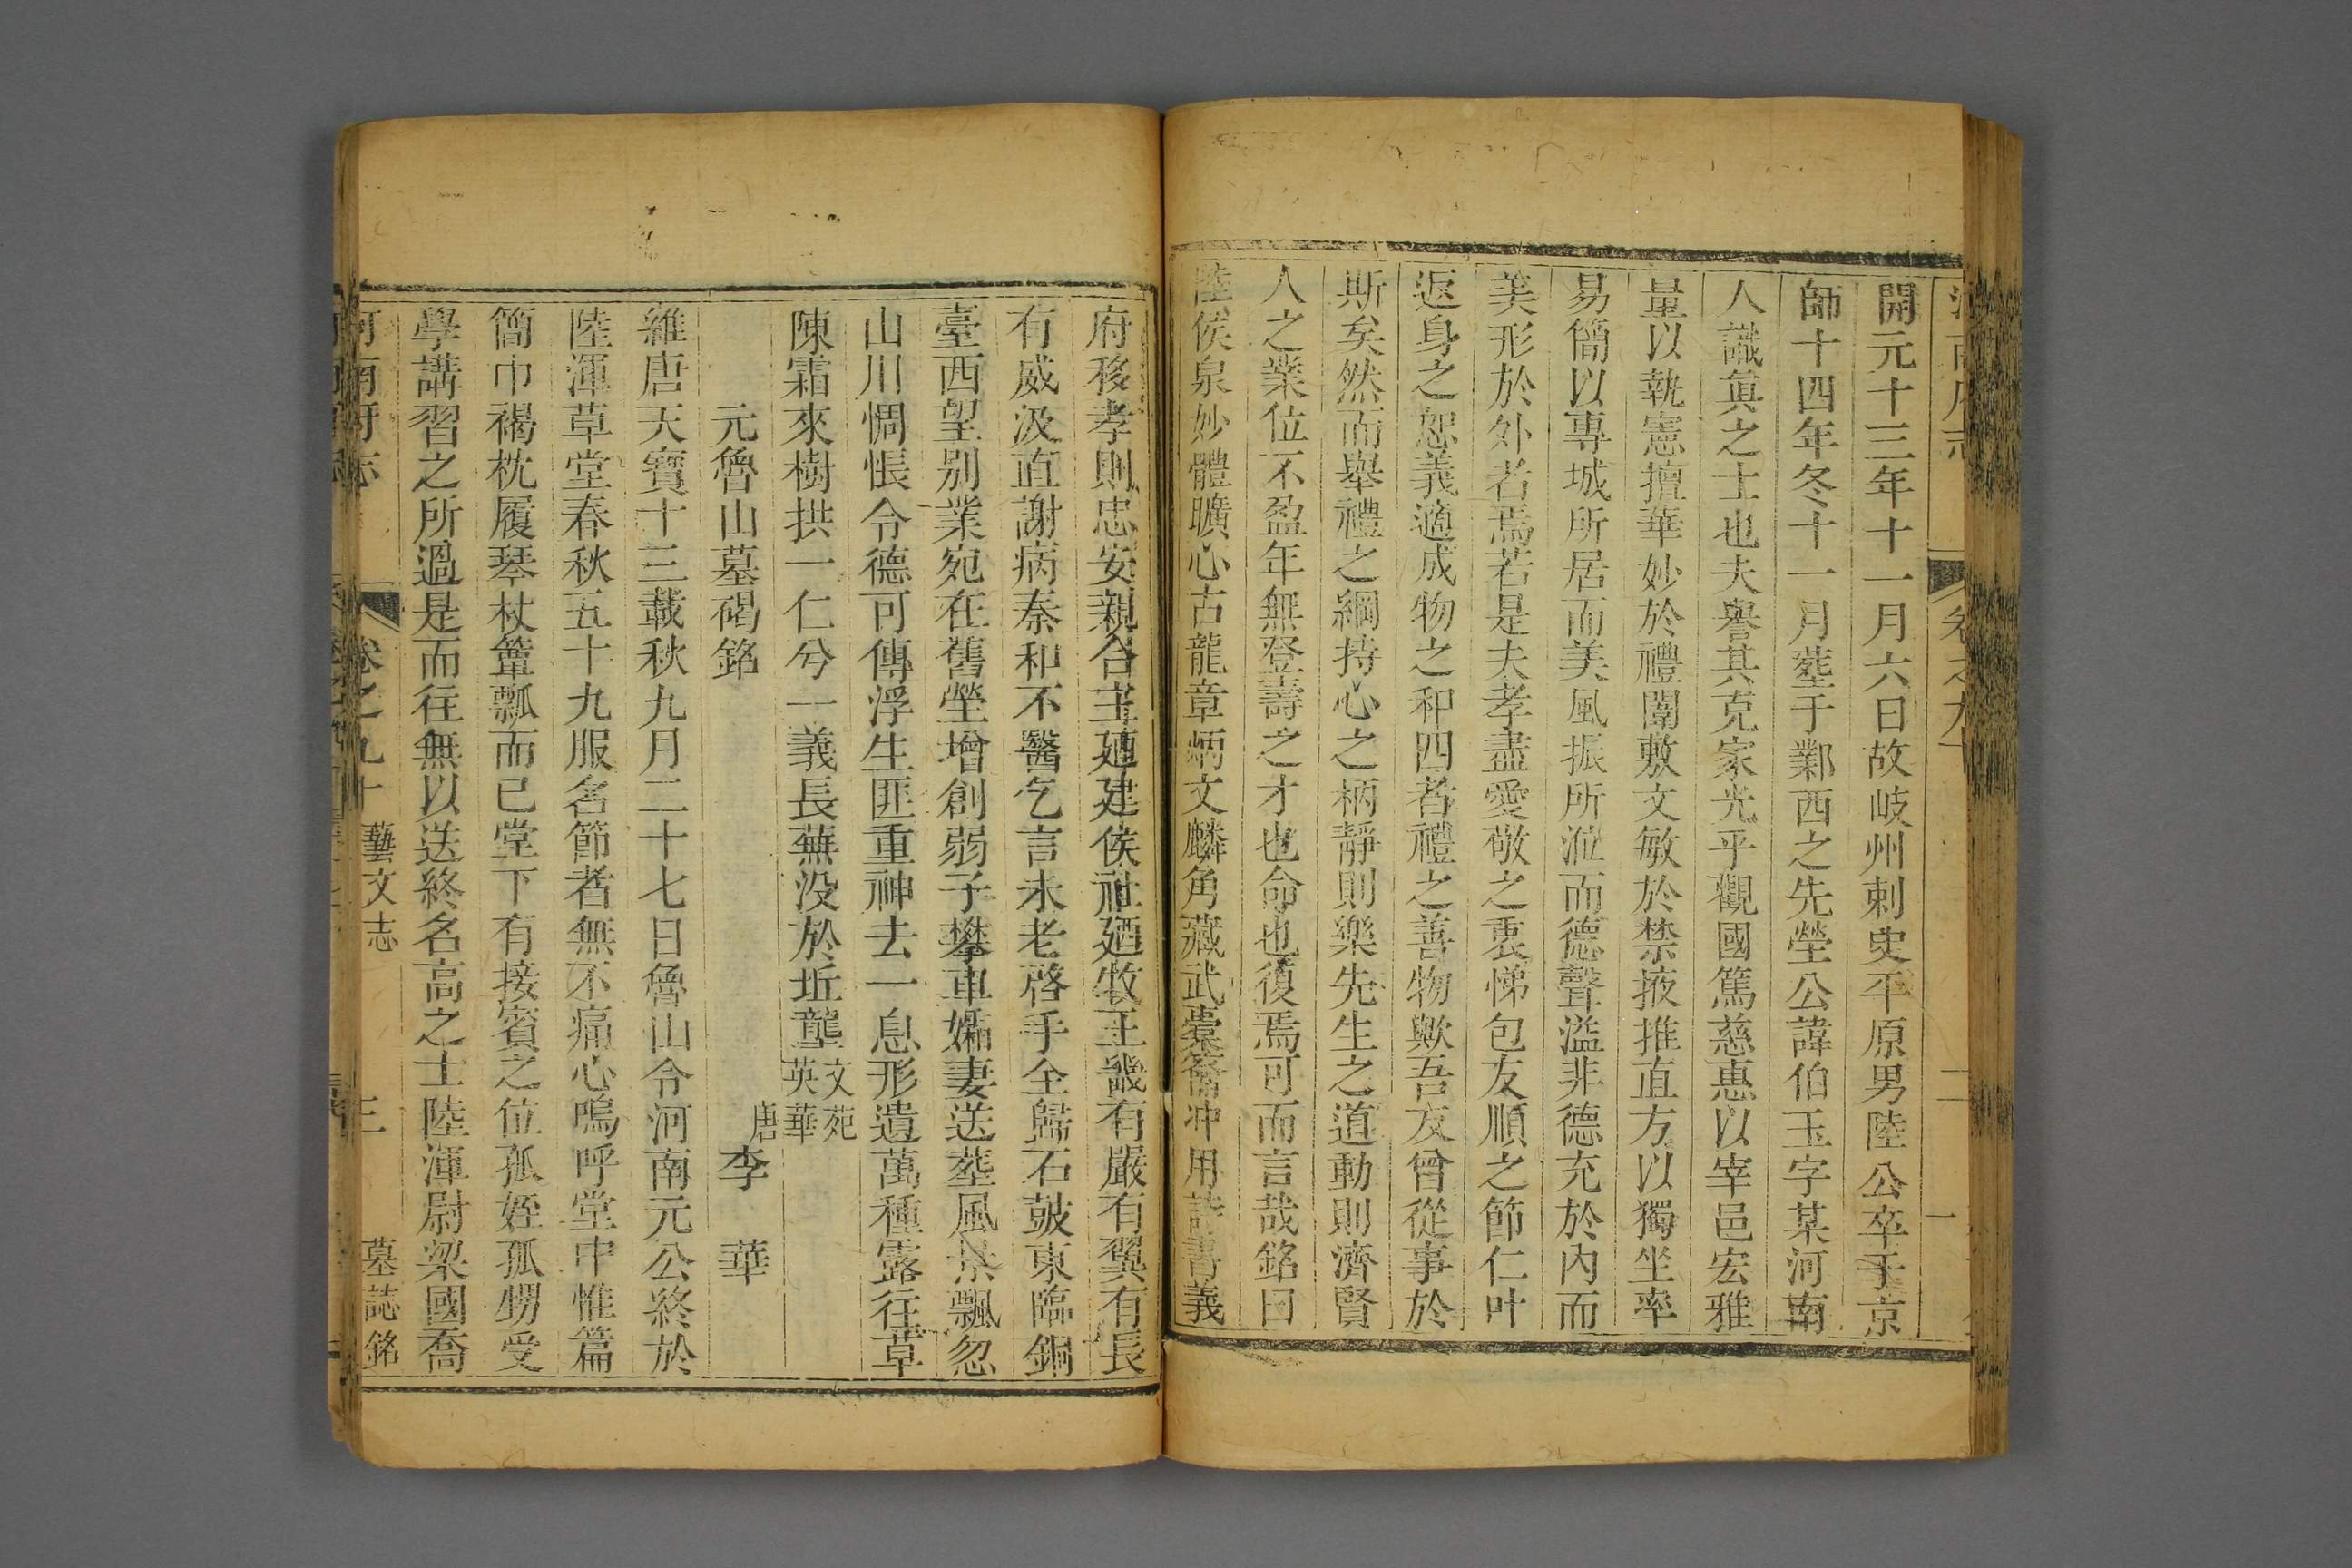 開元十三年十一月六日故岐州刺史平原男陸公卒于京
師十四年冬十一月葬于鄴西之先塋公諱伯玉字某河南
人識眞之士也夫譽其克家光乎觀國篤慈惠以宰邑宏雅
量以執憲擅華妙於禮闈敷文敏於禁掖推直方以獨坐率
易簡以專城所居而美風振所涖而德聲溢非德充於內而
美形於外者焉若是夫孝盡愛敬之衷悌包友順之節仁叶
返身之恕義適成物之和四者禮之善物歟吾友曾從事於
斯矣然而舉禮之綱持心之柄靜則樂先生之道動則濟賢
人之業位不盈年無登壽之才也命也復焉可而言哉銘曰
陸侯泉妙體曠心古龍章炳文麟角藏武橐籥冲用詩書義
府移孝則忠安親合主廼建侯社廼牧王畿有嚴有翼有長
有威汲直謝病秦和不醫乞言未老啓手全歸石鼓東臨銅
臺西望別業宛在舊塋增創弱子攀車孀妻送葬風景飄忽
山川惆悵令德可傳浮生匪重神去一息形遺萬種露往草
陳霜來樹拱一仁兮一義長蕪没於坵壟文苑英華
元魯山墓碣銘 唐李華
維唐天寶十三載秋九月二十七日魯山令河南元公終於
陸渾草堂春秋五十九服名節者無不痛心嗚呼堂中惟篇
簡巾褐枕履琴杖簞瓢而已堂下有接賓之位孤姪孤甥受
學講習之所過是而往無以送終名高之士陸渾尉梁國喬
河南府志 卷之九十 藝文志 三 墓誌銘